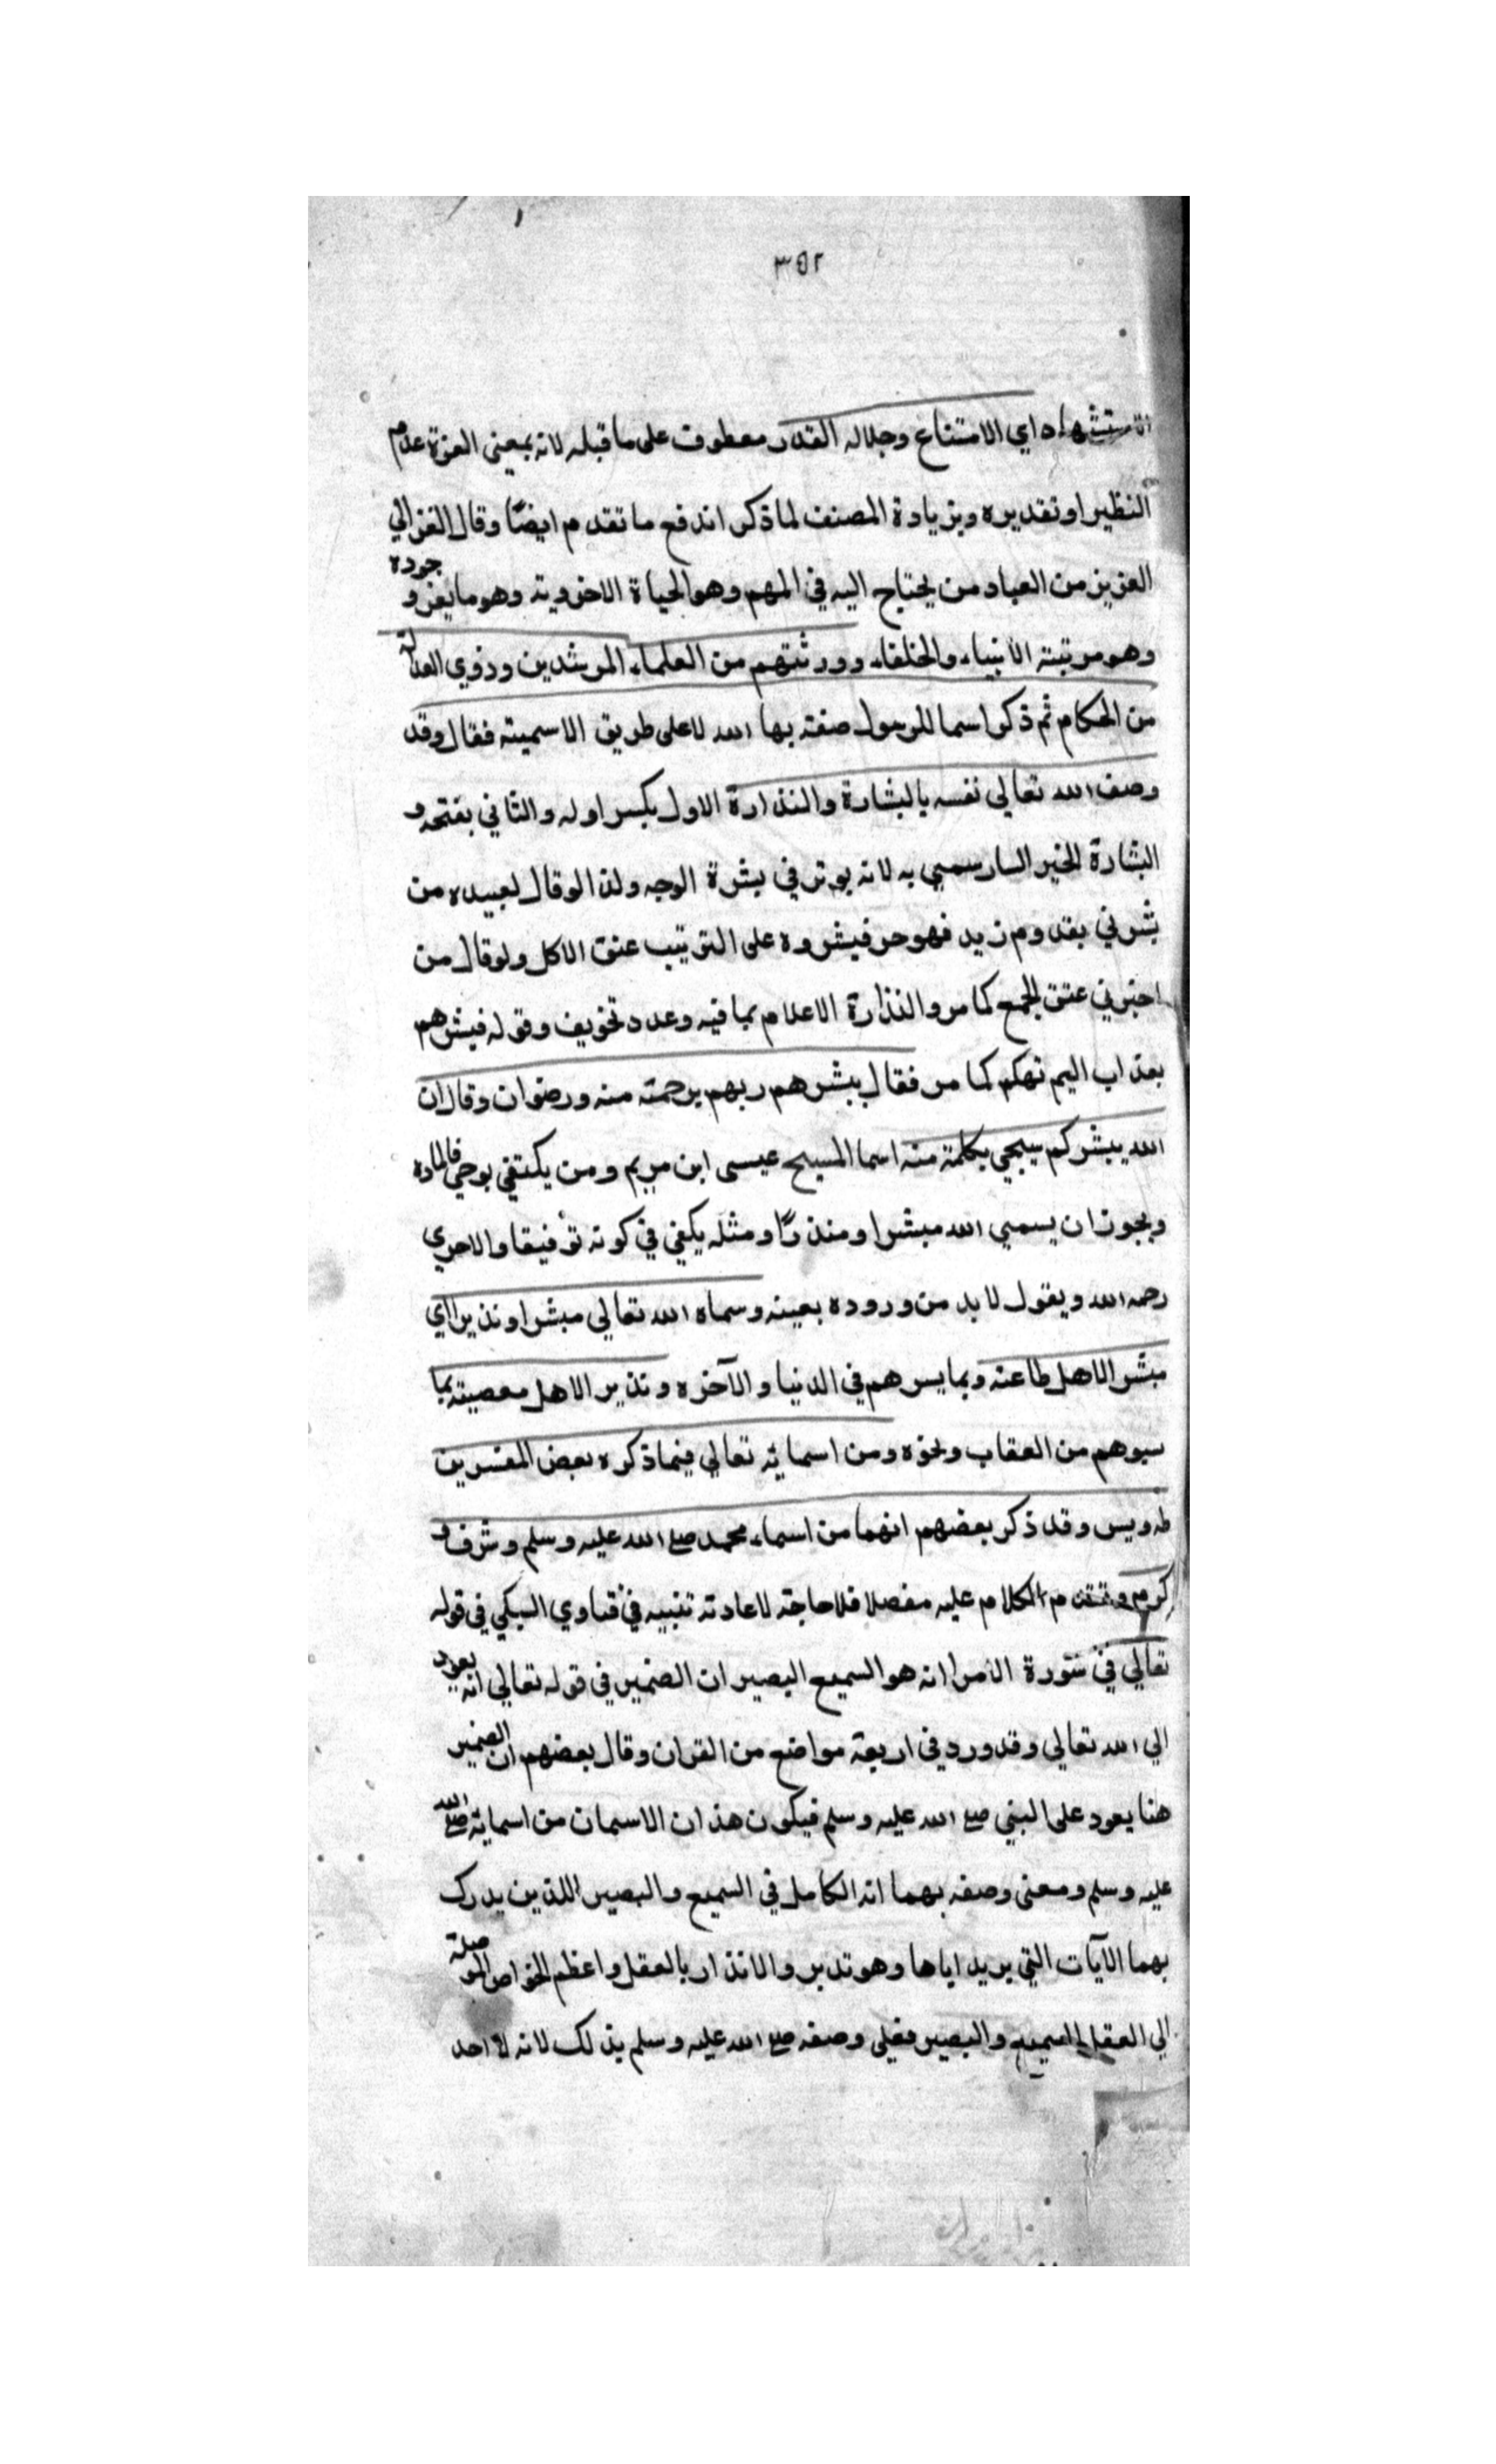 ٣٥٢
استشهاد اي الامتناع وجلاله القدر معطوف على ما قبله لانه بمعنى العزة عدم
النظير او تقديره وبزيادة المصنف لما ذكر اندفع ما تقدم ايضًا وقال الغزالي
العزيز من العباد من يحتاج اليه في المهم وهو الحياة الاخروية وهو ما يعز وجوده
وهو مرتبة الأنبياء والخلفاء وورثتهم من العلماء المرشدين وذوي العدالة
من الحكام ثم ذكر اسما للرسول صفته بها الله لا على طريق الاسمية فقال وقد
وصف الله تعالي نفسه بالبشارة والنذارة الاول بكسر اوله والثاني بفتحه و
البشارة الخبر السار سمي به لانه يوثر في بشرة الوجه ولذا لو قال لعبيده من
بشرني بقدوم زيد فهو حر فبشروه على الترتيب عنق الاكل ولو قال من
اخبرني عتق الجمع كما مر والنذارة الاعلام بما فيه وعدد تخويف وقوله فبشرهم
بعذاب اليم تهكم كما مر فقال يبشرهم ربهم برحمته منه ورضوان وقال ان
الله يبشركم بيحي بكلمة منه اسما المسيح عيسى ابن مريم ومن يكتفي بوحي فالمادة
ويجوز ان يسمي الله مبشرا ومنذرًا ومثله يكفي في كونه توفيقا والاحري
رحمه الله ويقول لا بد من وروده بعينه وسماه الله تعالي مبشرا ونذيرا اي
مبشر الاهل طاعته وبما يسرهم في الدنيا والآخره ونذير الاهل معصيته بما
يسوهم من العقاب ونحوه ومن اسمايه تعالي فيما ذكره بعض المفسرين
طه ويس وقد ذكر بعضهم انهما من اسماء محمد صلع الله عليه وسلم وشرف و
كرم وتقدم الكلام عليه مفصلا فلا حاجة لاعادته تنبيه في فتاوي السبكي في قوله
تعالي في سورة الأمرا انه هو السميع البصير ان الضمير في قوله تعالي انه يعود
الي الله تعالي وقد ورد في اربعة مواضع من القران وقال بعضهم ان الضمير
هنا يعود على النبي صلع الله عليه وسلم فيكون هذان الاسمان من اسمايه صلع الله
عليه وسلم ومعنى وصفه بهما انه الكامل في السميع والبصير اللذين يدرك
بهما الآيات التي يريد اياها وهو تدبر والانذار بالعقل واعظم الخواص الموصلة
الي العقل السميع والبصير فعلي وصفه صلع الله عليه وسلم بذلك لانه لا احد